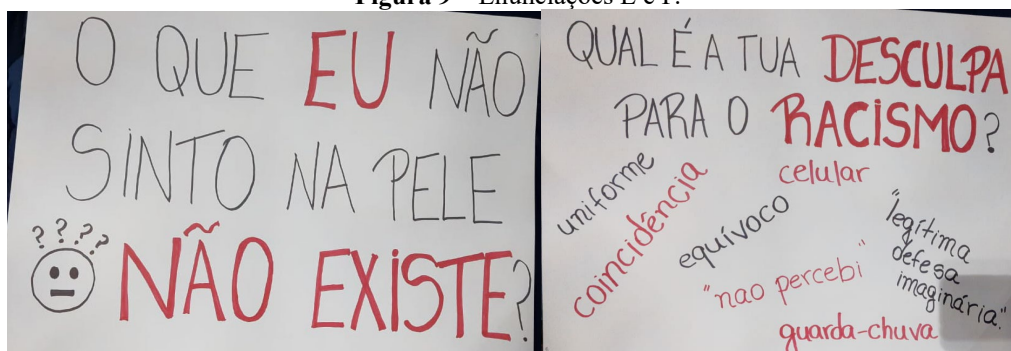 Figura 9 – Enunciações E e F.
O QUE EU NÃO
SINTO NA PELE
????
NÃO EXISTE?
QUAL É A TUA DESCULPA
PARA O RACISMO?
uniforme
coincidência
equívoco
celular
"nao percebi"
"legítima
defesa
imaginária."
guarda-chuva